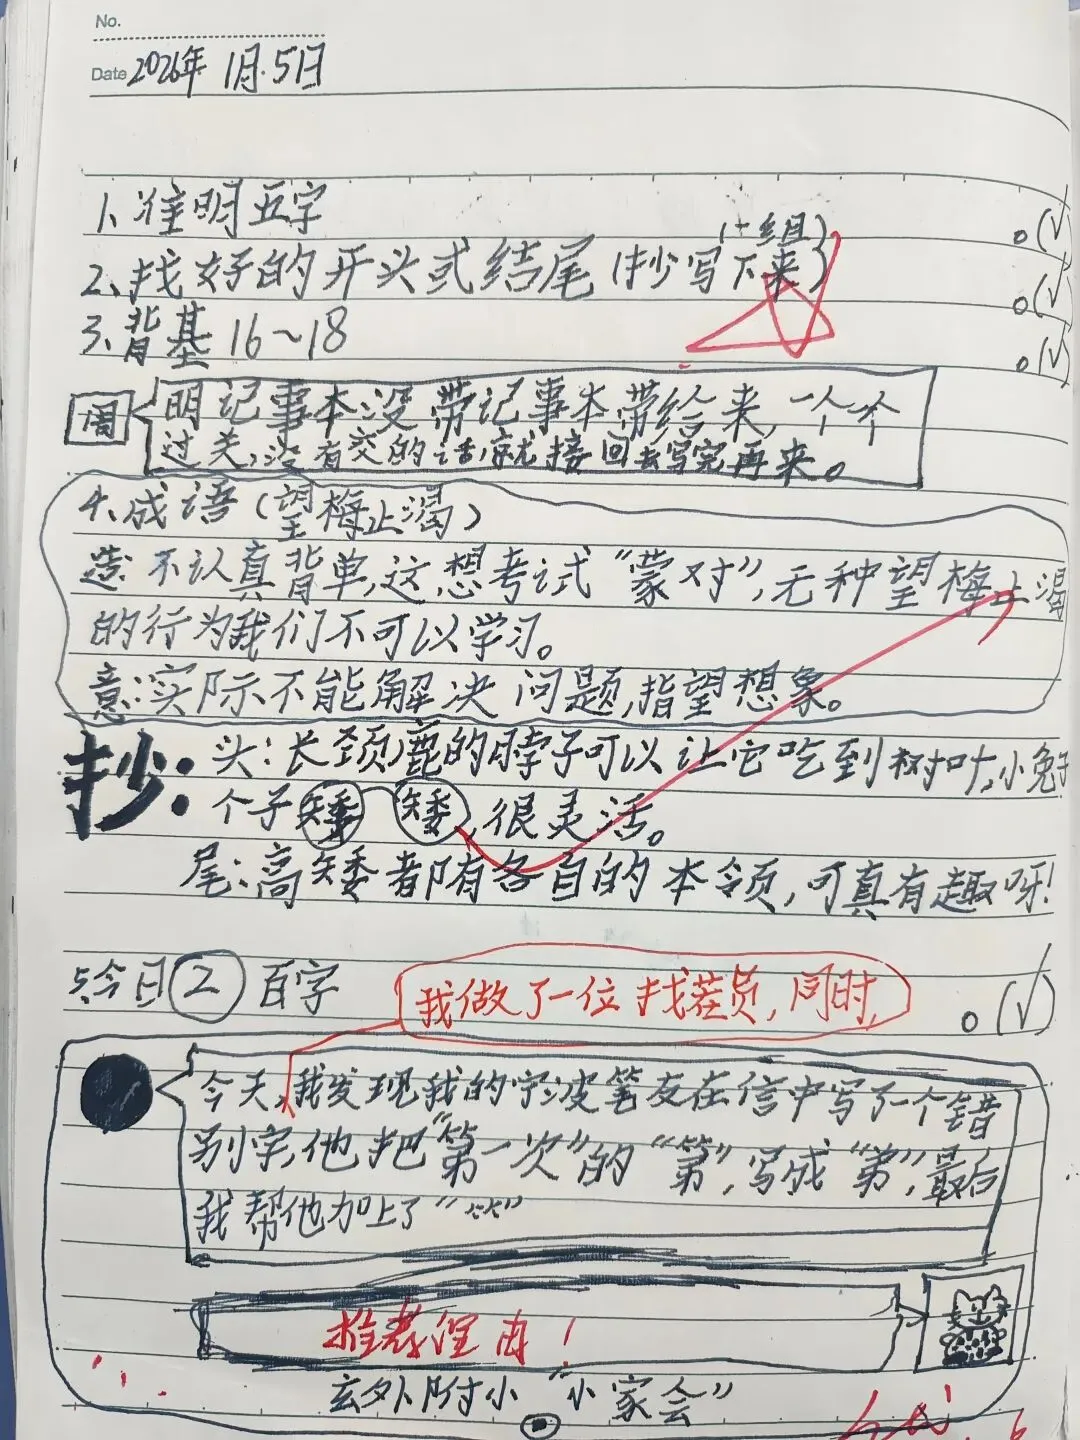 No.
Date 2026年 1月.5日
1、准明五字 。(√)
(+组)
2、找好的开头或结尾(抄写下来) 。(√)
3、背基16~18 。(√)
周
明记事本没带记事本带给来,一个个
过关,没有交的话,就接回去写完再来。
4、成语(望梅止渴)
造:不认真背单,这想考试“蒙对”,无种望梅止渴
的行为我们不可以学习。
意:实际不能解决问题,指望想象。
抄:头:长颈鹿的脖子可以让它吃到树叶,小兔子
个子矮矮,很灵活。
尾:高矮都有各自的本领,可真有趣呀!
5、今日②百字 。(√)
我做了一位找茬员,同时,
今天,我发现我的宁波笔友在信中写了一个错
别字,他把“第一次”的“第”,写成“弟”,最后
我帮他加上了“⺮”
推荐理由!
玄外附小“小家会”